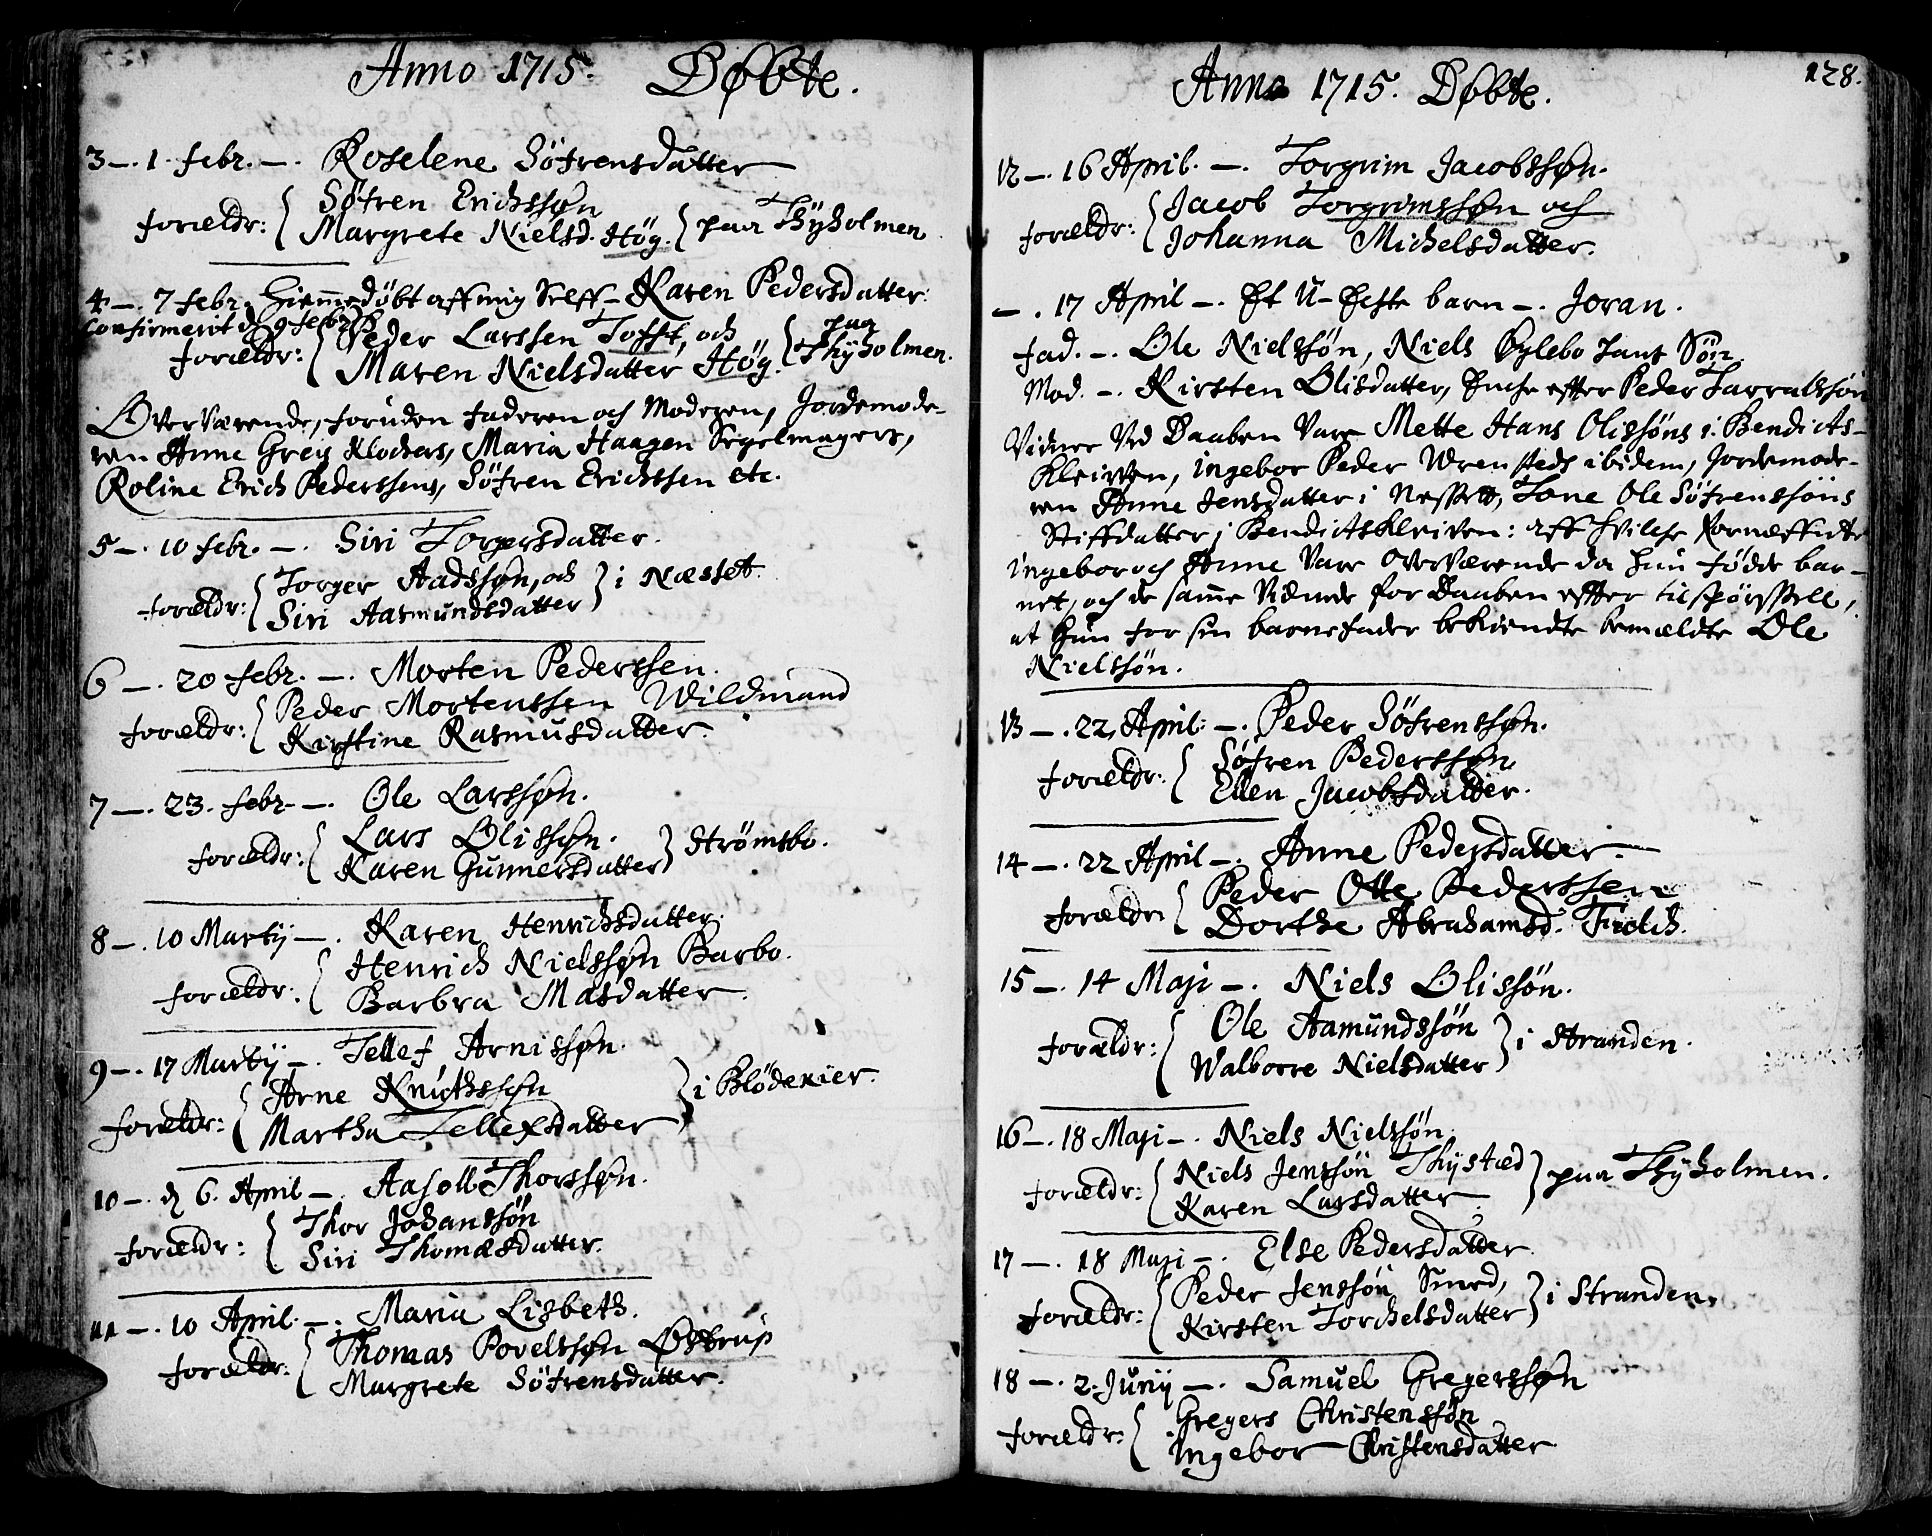 Anno 1715. Døbte.
3 —. 1. febr. —. Roselene Söfrensdatter
foræld: Söfren Erichssøn
Margrete Nielsd. Hög. paa Thyholmen
4 —. 7 febr. Hiemmedöbt aff mig Selff — Karen Pedersdatter.
Confirmerit d. 9 febr.
forældr: Peder Larssen Tofft, och
Maren Nielsdatter Hög. paa Thyholmen.
Overværende, foruden faderen och Moderen, Jordemode-
ren Anne Grey Klockers, Maria Haagen Segelmagers,
Roline Erich Pederssens, Söfren Erichssen etc.
5 —. 10 febr. —. Siri Torgersdatter.
forældr: Torger Aadssøn, och
Siri Aasmundsdatter i Næsset.
6 —. 20 febr. —. Morten Pederssen.
forældr: Peder Mortenssen Wildmand
Kirstine Rasmusdatter.
7 —. 23. febr —. Ole Larssøn.
forældr: Lars Olissøn.
Karen Gunnersdatter Strömsbo.
8 —. 10 Martij —. Karen Henrichsdatter.
forældr. Henrich Nielssøn Barbo.
Barbra Masdatter.
9 —. 17 Martij —. Tellef Arnissøn.
forældr: Arne Knudssøn
Martha Tellefsdatter i Blödekier.
10 —. d 6. April —. Aasoll Thorssøn.
forældr: Thor Johanssön
Siri Thomæsdatter.
11 —. 10 April. —. Maria Lisbeth.
forældr: Thomas Povelssøn Østrup
Margrete Söfrensdatter.
Anno 1715. Døbte. 128.
12 —. 16 April. —. Torgrim Jacobssøn.
forældr: Jacob Torgrimssøn och
Johanna Michelsdatter.
—. 17 April —. Et U-Ecte barn —. Joran.
fad. —. Ole Nielssön, Niels Øylebo hans Sön.
Mod. —. Kirsten Olisdatter, Encke effter Peder Tarralssön
Vidner Ved Daaben Vare Mette Hans Olissöns i Bendicts-
Kleiven, ingebor Peder Wrensteds ibidem, Jordemode-
ren Anne Jensdatter i Nessett, Tone Ole Söfrenssöns
Stiffdatter i Bendictskleiven: aff hvilche fornæffnte
ingebor och Anne Vare Overværende da hun födde bar-
net, och de samme Vidnede for Daaben effter tilspörssell,
at hun for sin barnefader bekiendte bemældte Ole
Nielssön.
13 —. 22, April: —. Peder Söfrenssøn.
forældr: Söfren Pederssøn
Ellen Jacobsdatter.
14 —. 22 April —. Anne Pedersdatter.
forældr: Peder Otte Pederssen
Dorthe Abrahamsd.
15 —. 14 Maji —. Niels Olissön.
forældr: Ole Aamundssön
Walborre Nielsdatter i Stranden.
16 —. 18 Maji —. Niels Nielssön.
forældr: Niels Jenssön Thystæd
Karen Larsdatter paa Thyholmen.
17 —. 18 Maji —. Else Pedersdatter.
forældr: Peder Jenssön Smed,
Kirsten Torchelsdatter i Stranden.
18 —. 2. Junij —. Samuel Gregerssøn
forældr: Gregers Christenssøn
Ingebor Christensdatter